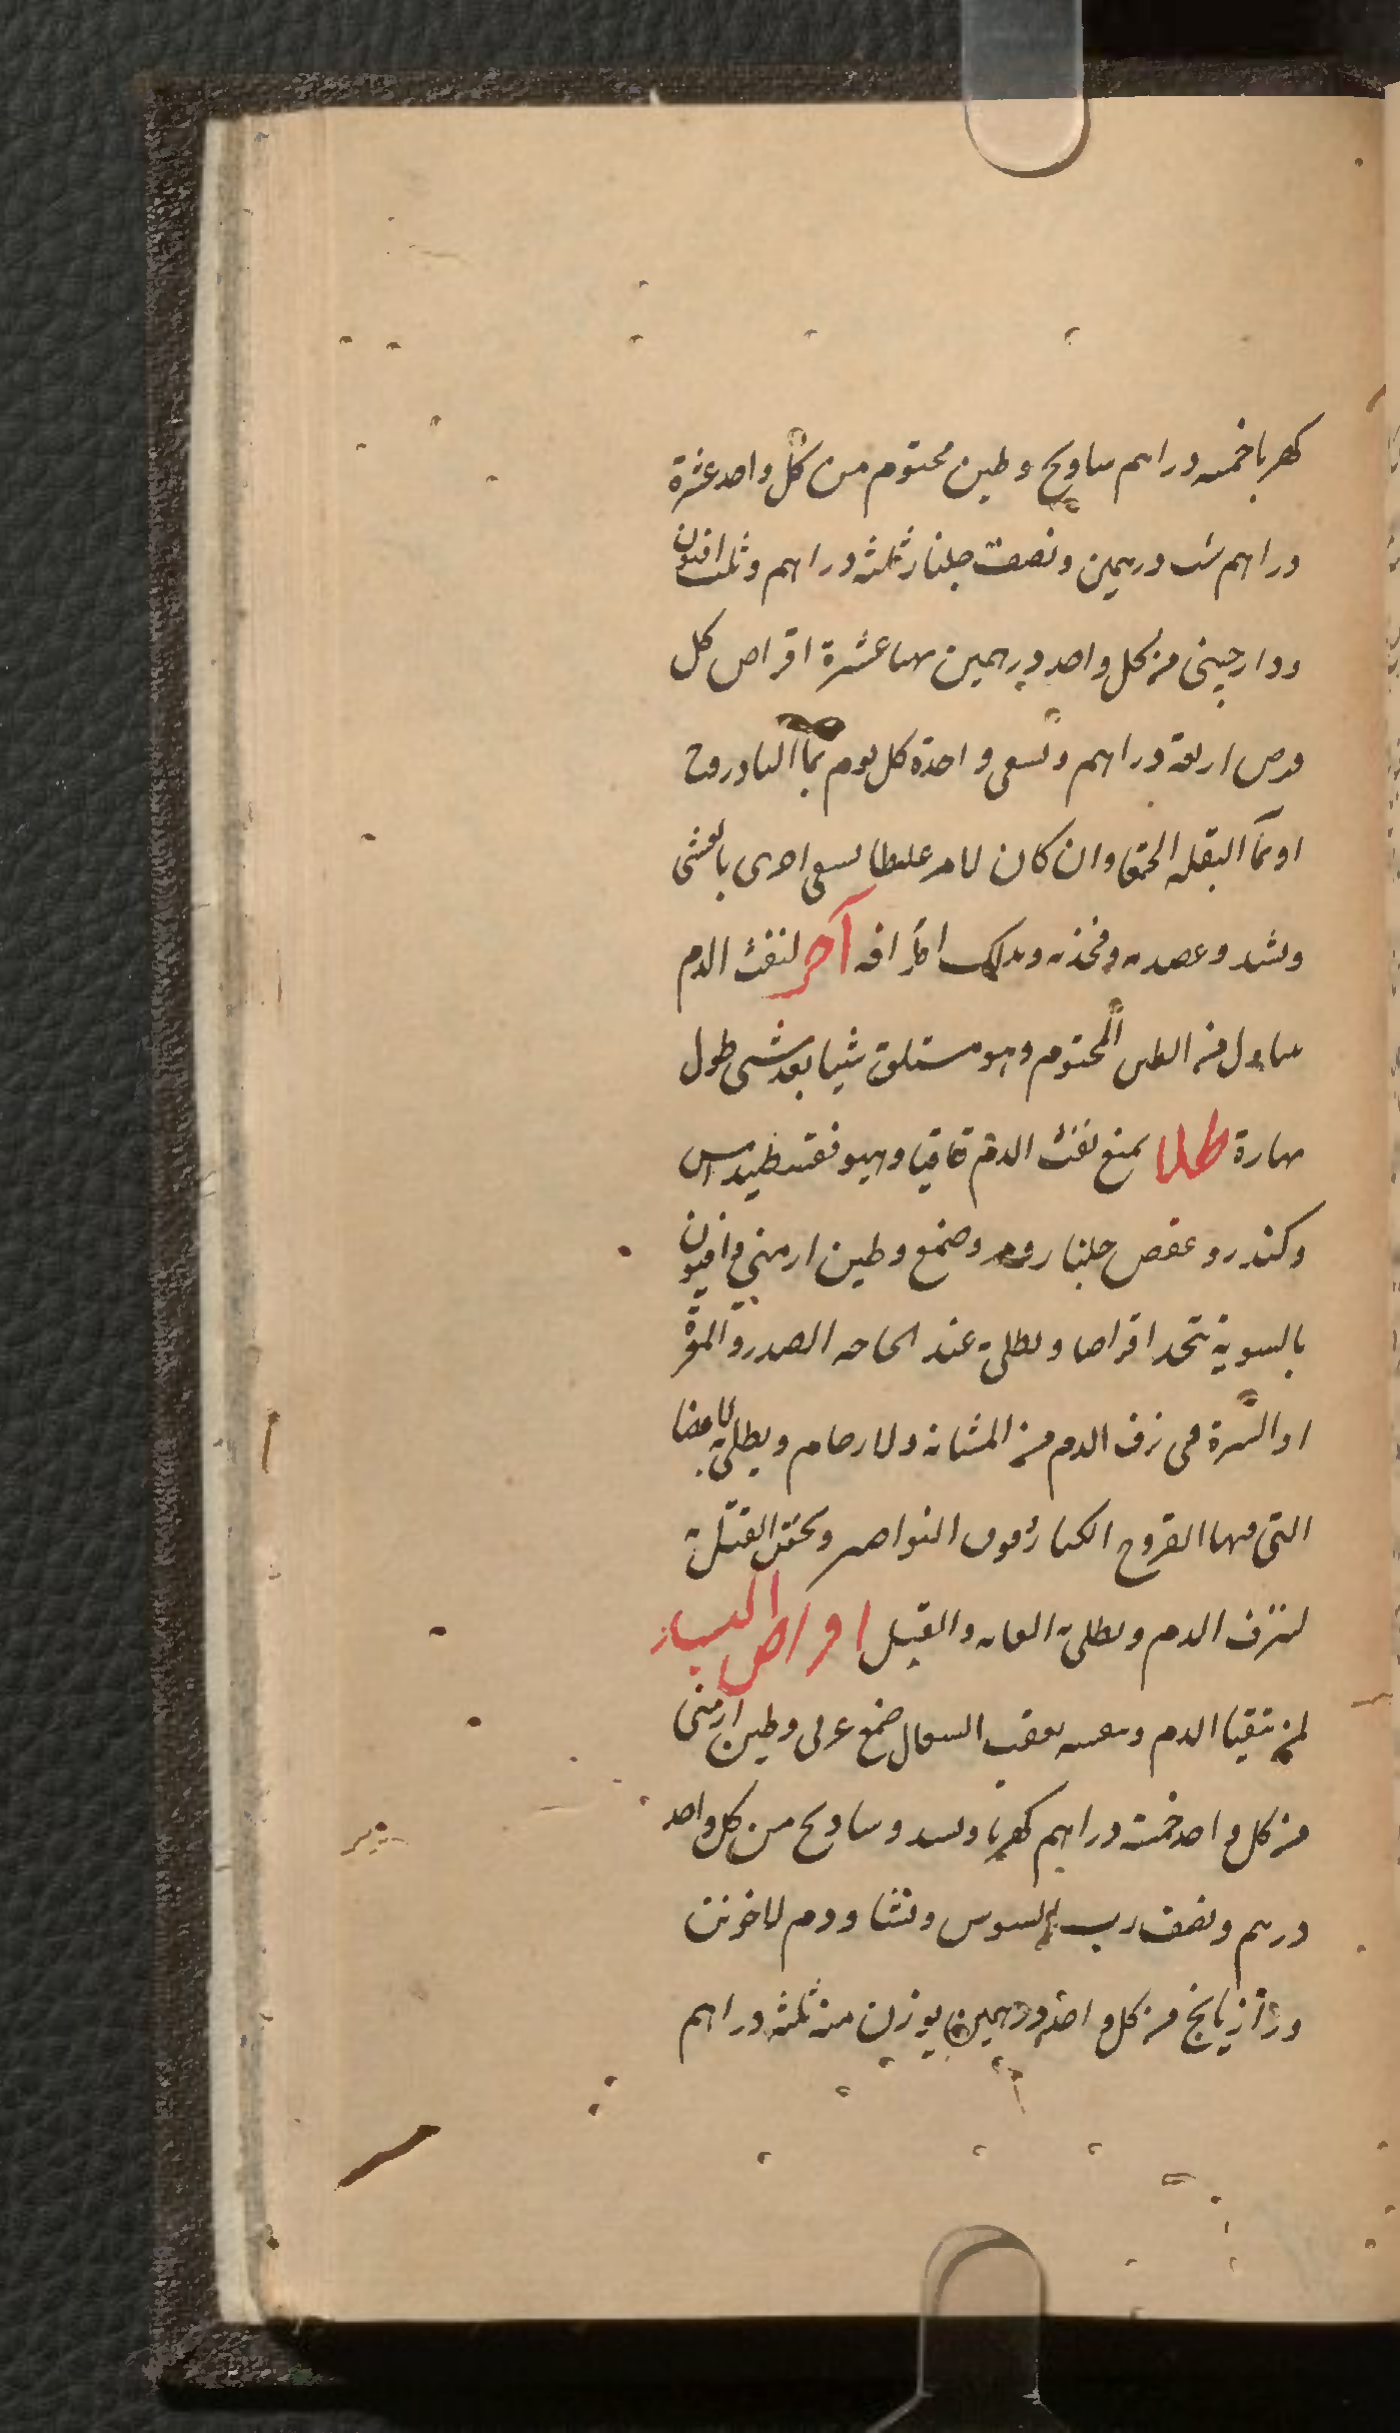 كهربا خمسه دراهم ساذج وطين مختوم من كل واحد عشرة
دراهم شب درهمين ونصف جلنار ثلثه دراهم وثلث افيون
ودارچينى من كل واحد درهمين عشرة اقراص كل
قرص اربعة دراهم وتسقى واحدة كل يوم بماء البادروج
او بماء البقله الحمقا وان كان الامر غليظا يسقى اخرى بالعشى
ويشد وعضديه وفخذيه ويدلك اطرافه آخر لنفث الدم
يتناول من الطين المختوم وهو مستلق شيا بعد شى طول
نهارة طلا يمنع نفث الدم قاقيا وهيوفقسطيداس
وكندر وعفص جلنار ومر وصمغ وطين ارمني وافيون
بالسوية تتخذ اقراصا ويطلى به عند الحاجه الصدر والمرة
او السرة فى نزف الدم من المثانه والارحام ويطلى به الاعضا
التى فيها القروح الكبار فوق النواصر ويحتقن الفتلة
لنزف الدم ويطلى به العانه والقبل اقراص البسد
لمن يتقيا الدم بعقب السعال صمغ عربى وطين ارمنى
من كل واحد خمسة دراهم كهربا وبسد وساذج من كل واحد
درهم ونصف رب السوس ونشا ودم الاخوين
ورازيانج من كل واحد درهمين يوزن منه ثلثه دراهم